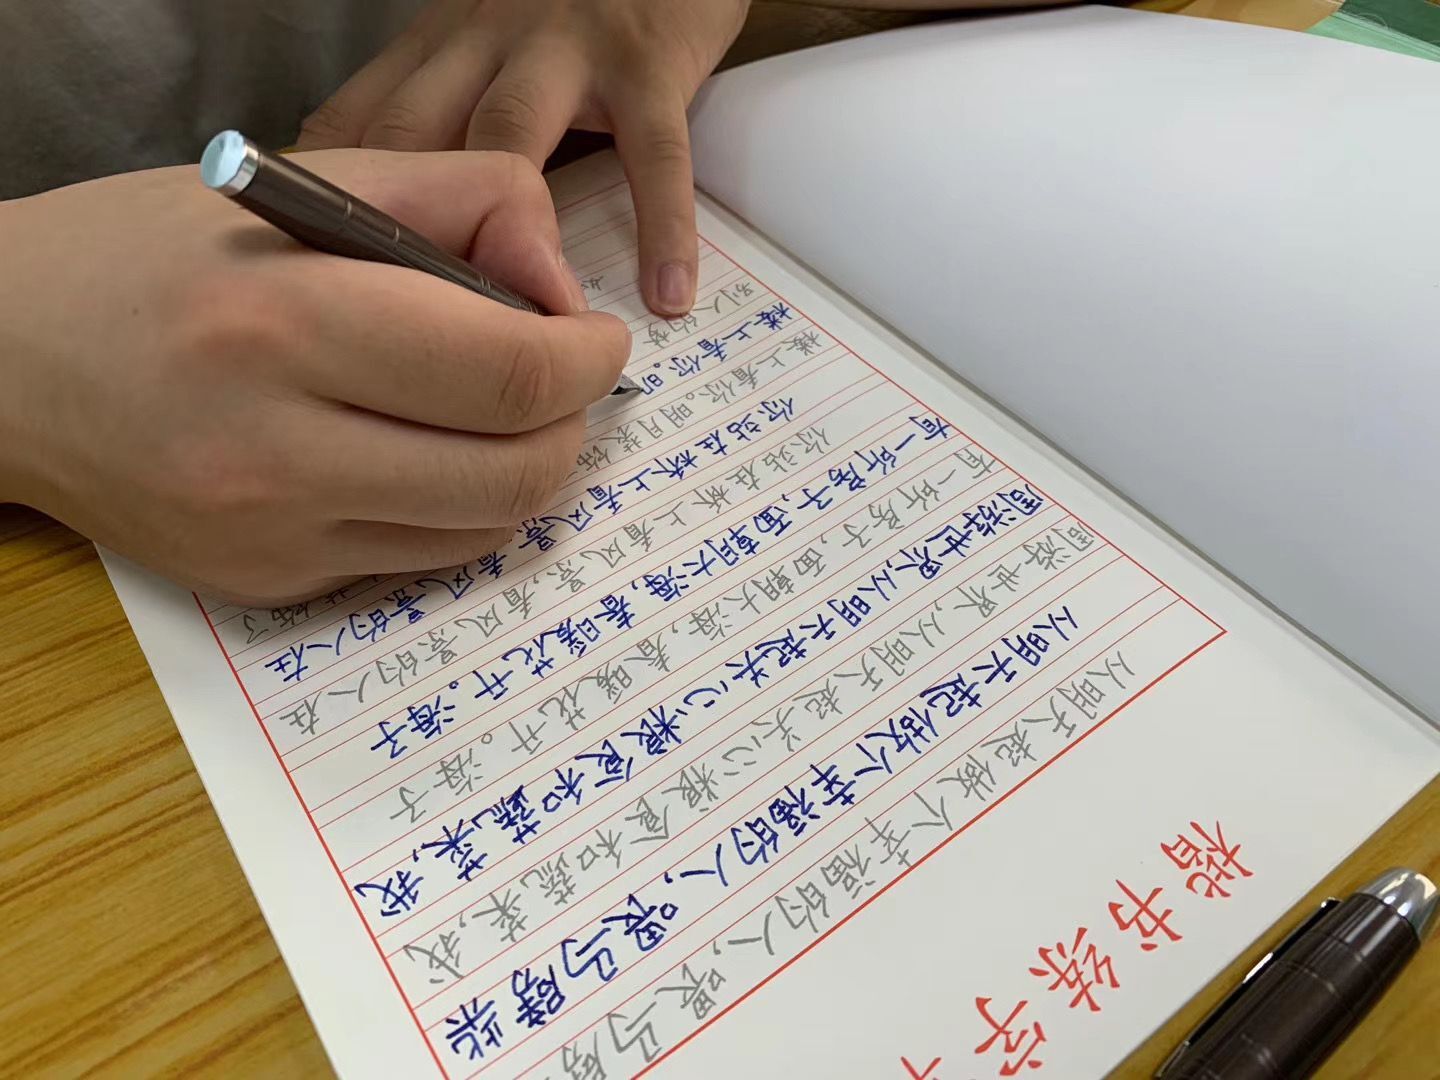 楷书练字
从明天起做个幸福的人,喂马劈
从明天起做个幸福的人,喂马劈柴
周游世界,从明天起关心粮食和蔬菜,我
周游世界,从明天起关心粮食和蔬菜,我
有一所房子,面朝大海,春暖花开。海子
有一所房子,面朝大海,春暖花开。海子
你站在桥上看风景,看风景的人在
你站在桥上看风景,看风景的人在
楼上看你。明月装饰 装饰了
楼上看你。明
别人的梦